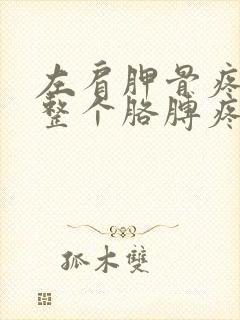 左肩胛骨疼
整个胳膊疼
狐木雙